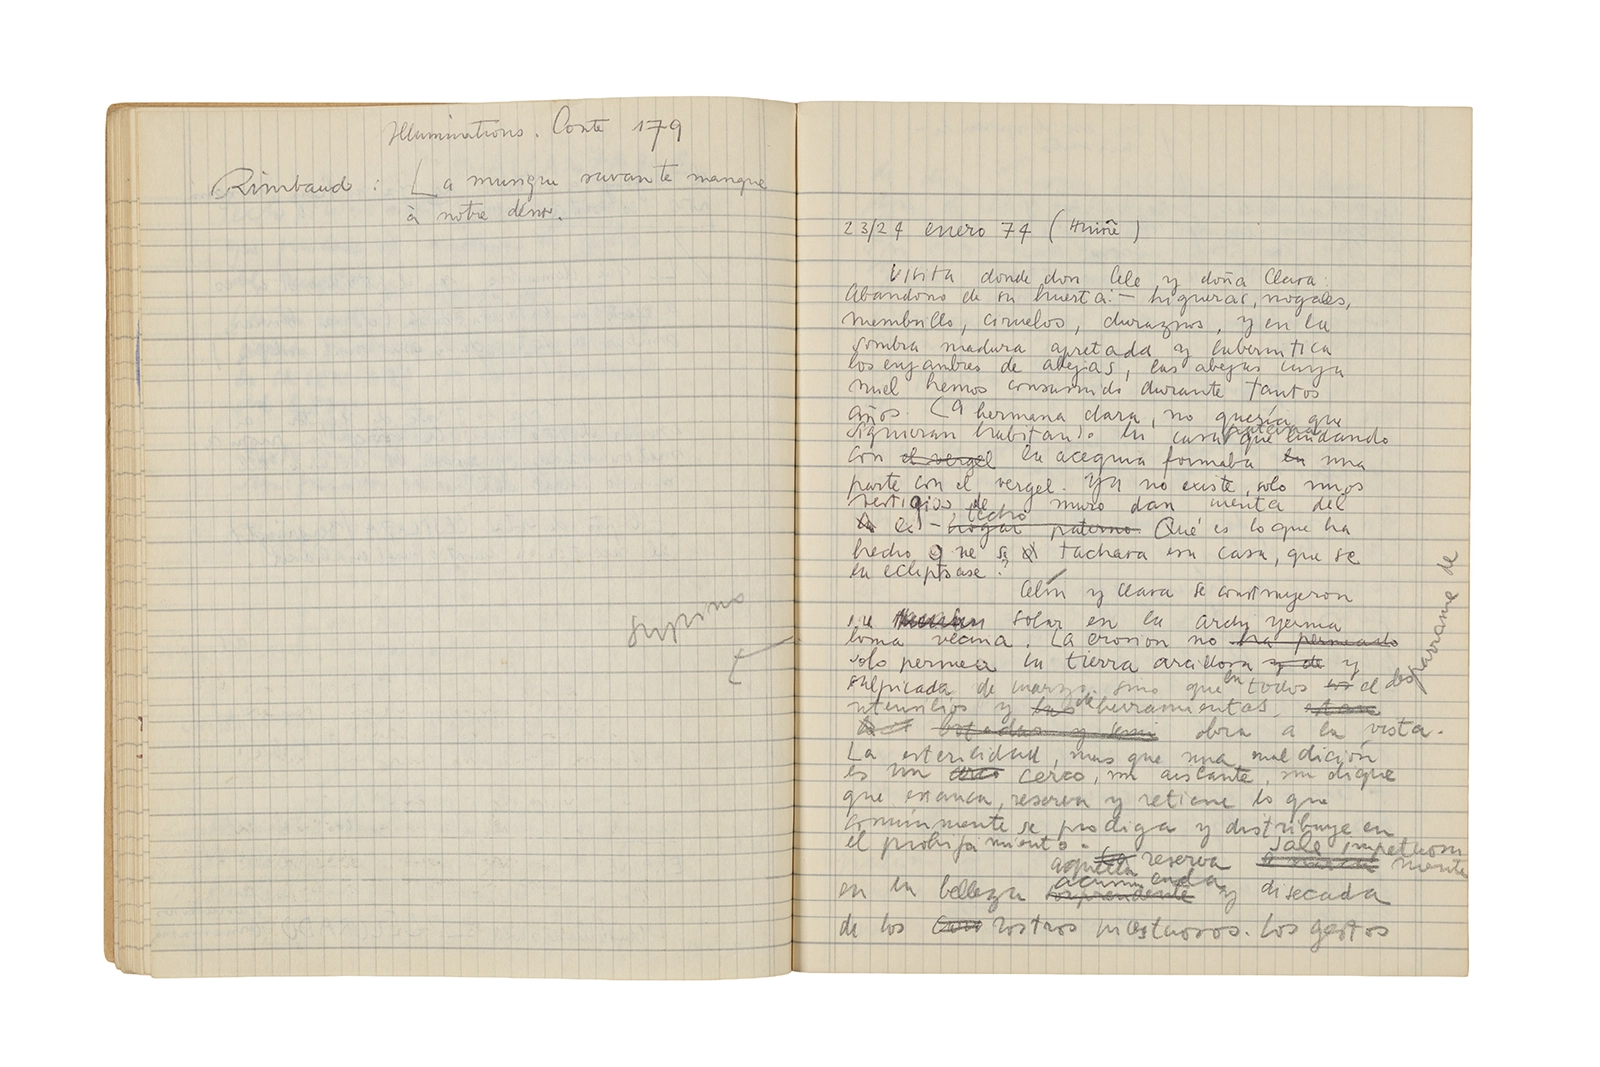 Illuminations. Conte 179
Rimbaud : La musique savante manque
à notre désir.
supino
23/24 enero 74 (Huiñe)
Visita donde don Cele y doña Clara.
Abandono de su huerta:— higueras, nogales,
membrillo, ciruelos, duraznos, y en la
sombra madura apretada y
los enjambres de abejas, las abejas cuya
miel hemos consumido durante tantos
años. La hermana clara, no quería que
siguieran habitando la casa paterna que lindando
con el vergel la acequia formaba la una
parte con el vergel. Ya no existe, solo unos
vestigios de muro dan cuenta del
techo
hogar paterno. Qué es lo que ha
hecho que se tachara esa casa, que se
la eclipsase?
Celín y Clara se construyeron
su solar en la arcty yerma
loma vecina. La erosión no ha permeado
solo permea la tierra arcillosa y de y
salpicada de sino que en todos los el desparrame de
utensilios y las de herramientas
obra a la vista.
La esterilidad, mas que una maldición
es un cerco, un aislante, un dique
que estanca, reserva y retiene lo que
comúnmente se prodiga y distribuye en
el prohijamiento.
aquella reserva sale impetuosamente
en la belleza sorprendente acumulada y disecada
de los rostros majestuosos. Los gestos